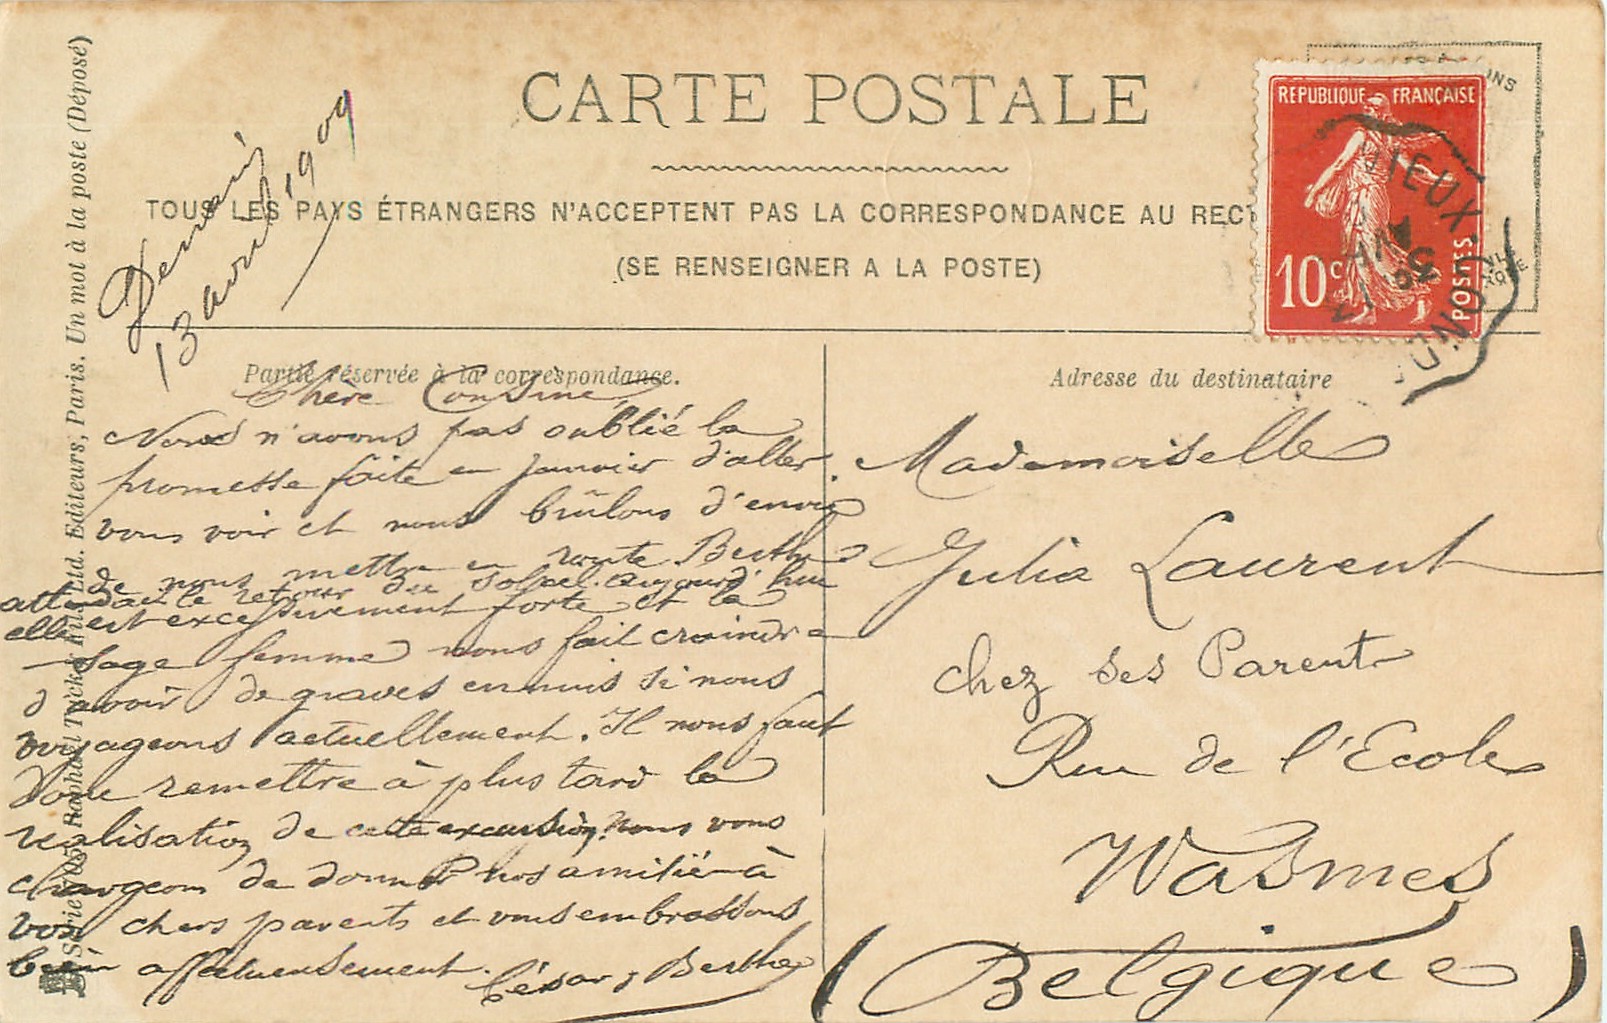 CARTE POSTALE
TOUS LES PAYS ÉTRANGERS N'ACCEPTENT PAS LA CORRESPONDANCE AU RECT
(SE RENSEIGNER A LA POSTE)
REPUBLIQUE FRANÇAISE
10c
POSTES
VIEUX-COND
Denain
13 avril 1909
Partie réservée à la correspondance.
Adresse du destinataire
Chère Cousine,
Nous n'avons pas oublié la
promesse faite en janvier d'aller
vous voir et nous brûlons d'envie
de nous mettre en route. Berthe
attendait le retour du soleil. aujourd'hui
elle est excessivement forte et la
sage femme nous fait craindre
d'avoir de graves ennuis si nous
voyageons actuellement. Il nous faut
donc remettre à plus tard la
réalisation de cette excursion. Nous vous
chargeons de donner nos amitiés à
vos chers parents et vous embrassons
bien affectueusement.
César & Berthe
Mademoiselle
Julia Laurent
chez ses Parents
Rue de l'Ecole
Wasmes
(Belgique)
Raphael Tuck & Fils, Ltd. Editeurs, Paris. Un mot à la poste (Déposé)